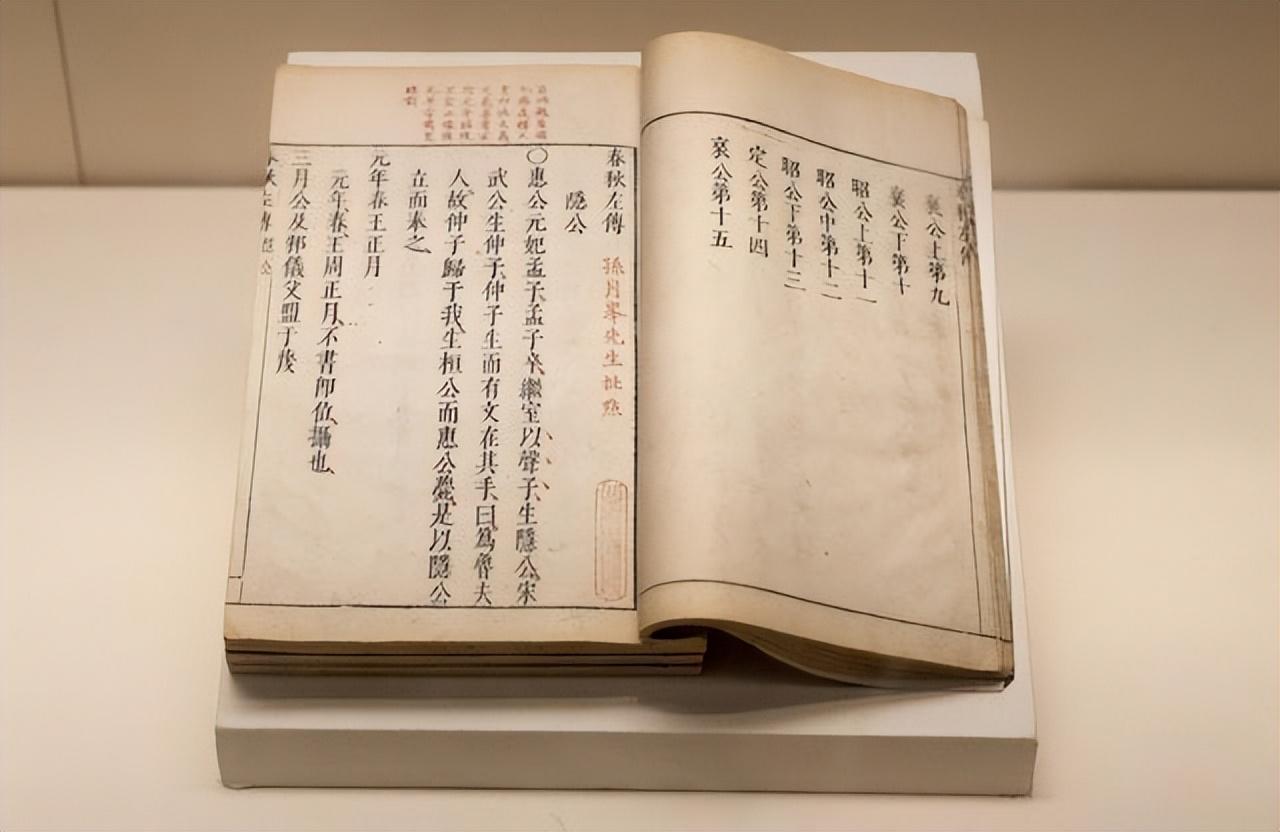 襄公上第九
襄公下第十
昭公上第十一
昭公中第十二
昭公下第十三
定公第十四
哀公第十五
春秋左傳 孫月峯先生批點
隱公
○惠公元妃孟子孟子卒繼室以聲子生隱公宋
武公生仲子仲子生而有文在其手曰爲魯夫
人故仲子歸于我生桓公而惠公薨是以隱公
立而奉之
元年春王正月
元年春王周正月不書卽位攝也
三月公及邾儀父盟于蔑
秋左傳 隱公